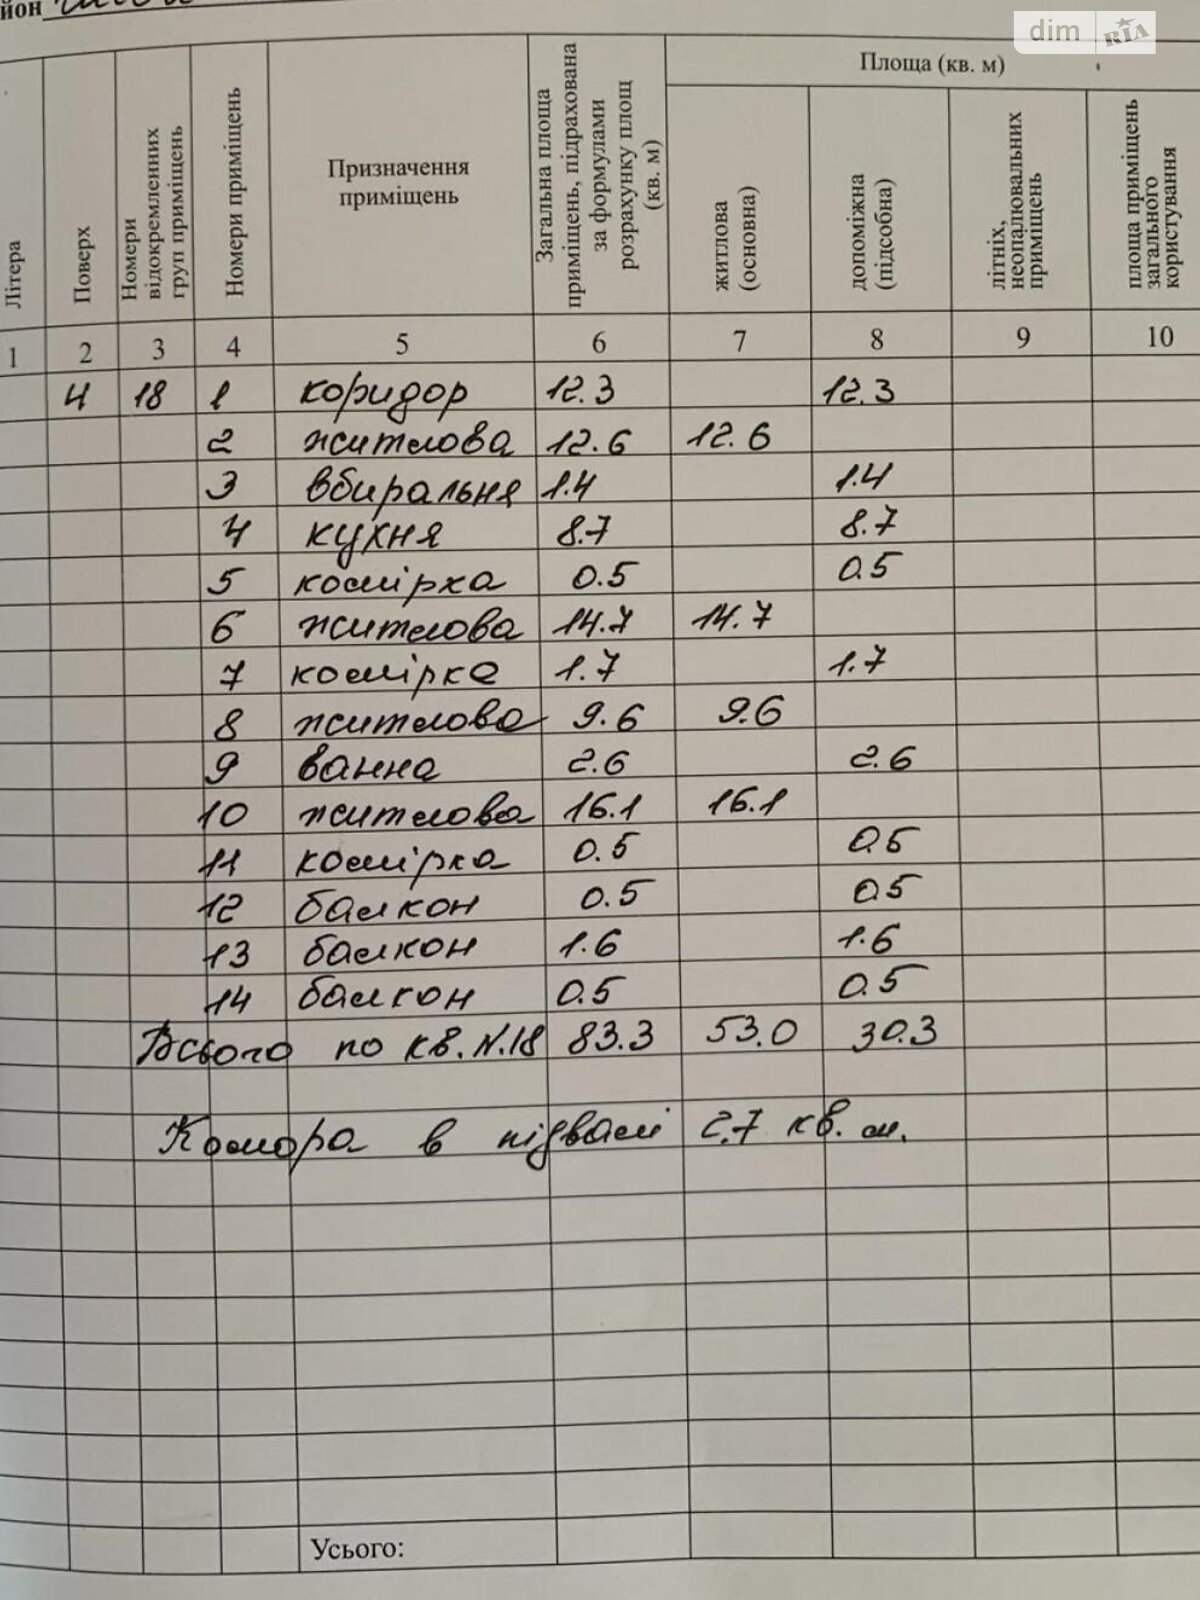 йон
dim RIA
Площа (кв. м)
Літера
Поверх
Номери відокремленних груп приміщень
Номери приміщень
Призначення приміщень
Загальна площа приміщень, підрахована за формулами розрахунку площ (кв. м)
житлова (основна)
допоміжна (підсобна)
літніх, неопалювальних приміщень
площа приміщень загального користування
1 2 3 4 5 6 7 8 9 10
4 18 1 коридор 12.3 12.3
2 житлова 12.6 12.6
3 вбиральня 1.4 1.4
4 кухня 8.7 8.7
5 комірка 0.5 0.5
6 житлова 14.7 14.7
7 комірка 1.7 1.7
8 житлова 9.6 9.6
9 ванна 2.6 2.6
10 житлова 16.1 16.1
11 комірка 0.5 0.5
12 балкон 0.5 0.5
13 балкон 1.6 1.6
14 балкон 0.5 0.5
Всього по кв. N.18 83.3 53.0 30.3
Комора в підвалі 2.7 кв. м.
Усього: